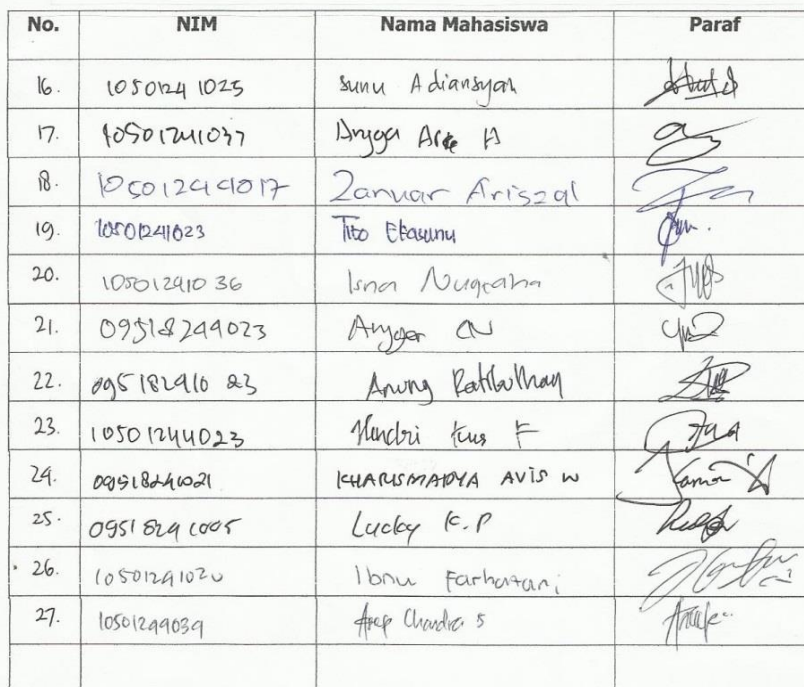 No. NIM Nama Mahasiswa Paraf
16. 10501241025 Sunu Adiansyah
17. 10501241037 Angga A
18. 10501244017 Zanuar Ariszal
19. 10501241023 Tito Ekasunu
20. 10501241036 Isna Nugraha
21. 09518244023 Angger CN
22. 09518241023 Anung
23. 10501244023 Hendri Kus F
24. 09518241021 KHARISMADYA AVIS W
25. 09518241005 Lucky K.P
26. 10501241020 Ibnu
27. 10501244039 Asep Chandra S